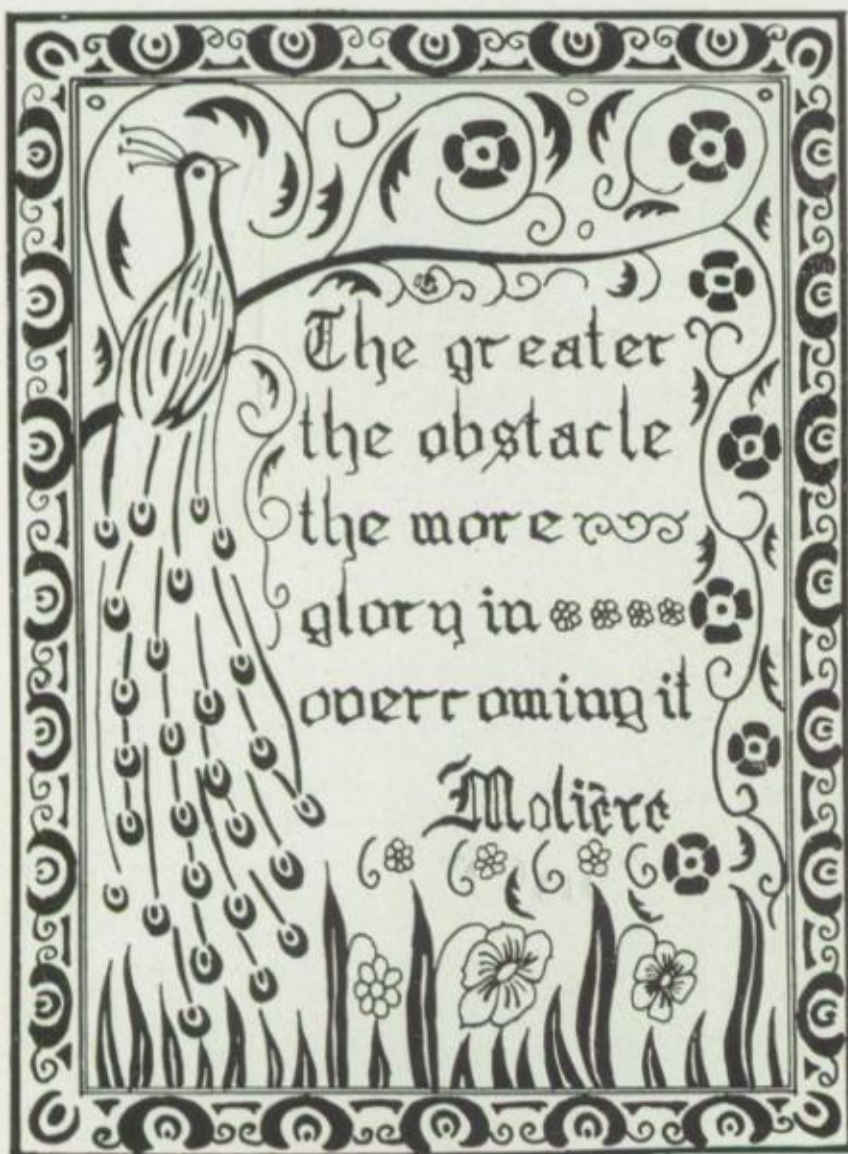 The greater
the obstacle
the more
glory in
overcoming it
Molière